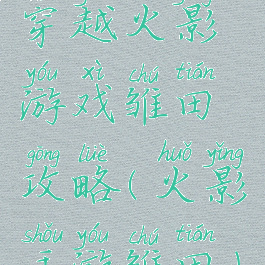 穿越火影
yóu xì chú tián
游戏雏田
gōng lüè huǒ yǐng
攻略(火影
shǒu yóu chú tián
手游雏田)